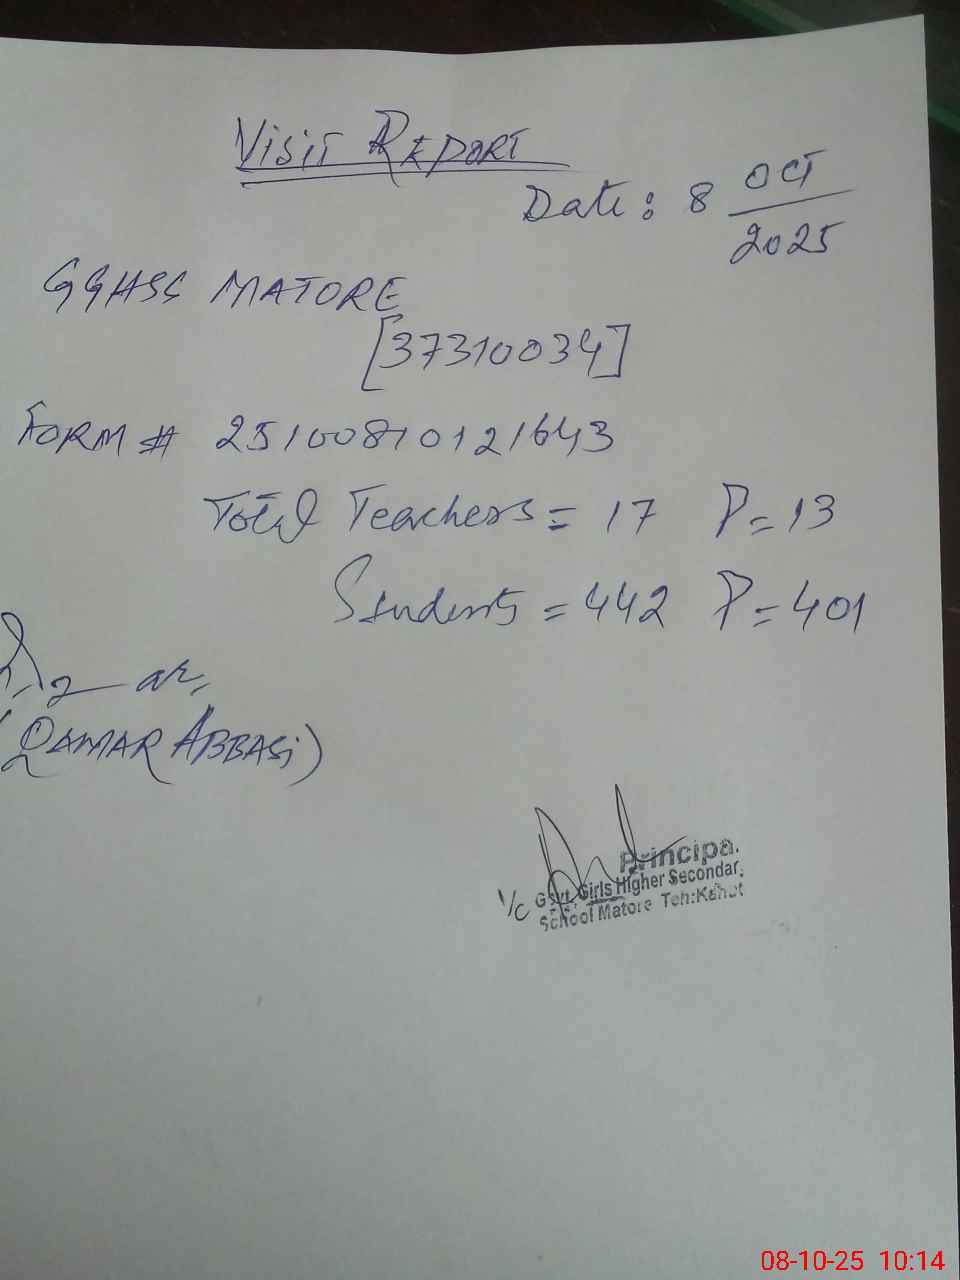 VISIT REPORT
Date: 8 OCT
2025
GGHSS MATORE
[37310034]
FORM # 25100810121643
Total Teachers = 17 P = 13
Students = 442 P = 401
(QAMAR ABBASi)
Principa.
I/C Govt. Girls Higher Secondar.
School Matore Teh:Kahut
08-10-25 10:14